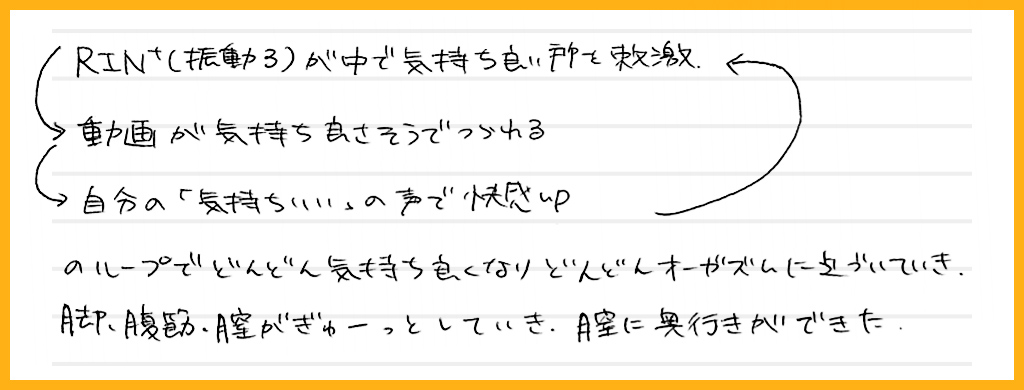 RIN+(振動3)が中で気持ち良い所を刺激.
動画が気持ち良さそうでつられる
自分の「気持ちいい」の声で快感up
のループでどんどん気持ち良くなりどんどんオーガズムに近づいていき、
脚、腹筋、膣がぎゅーっとしていき、膣に奥行きができた.